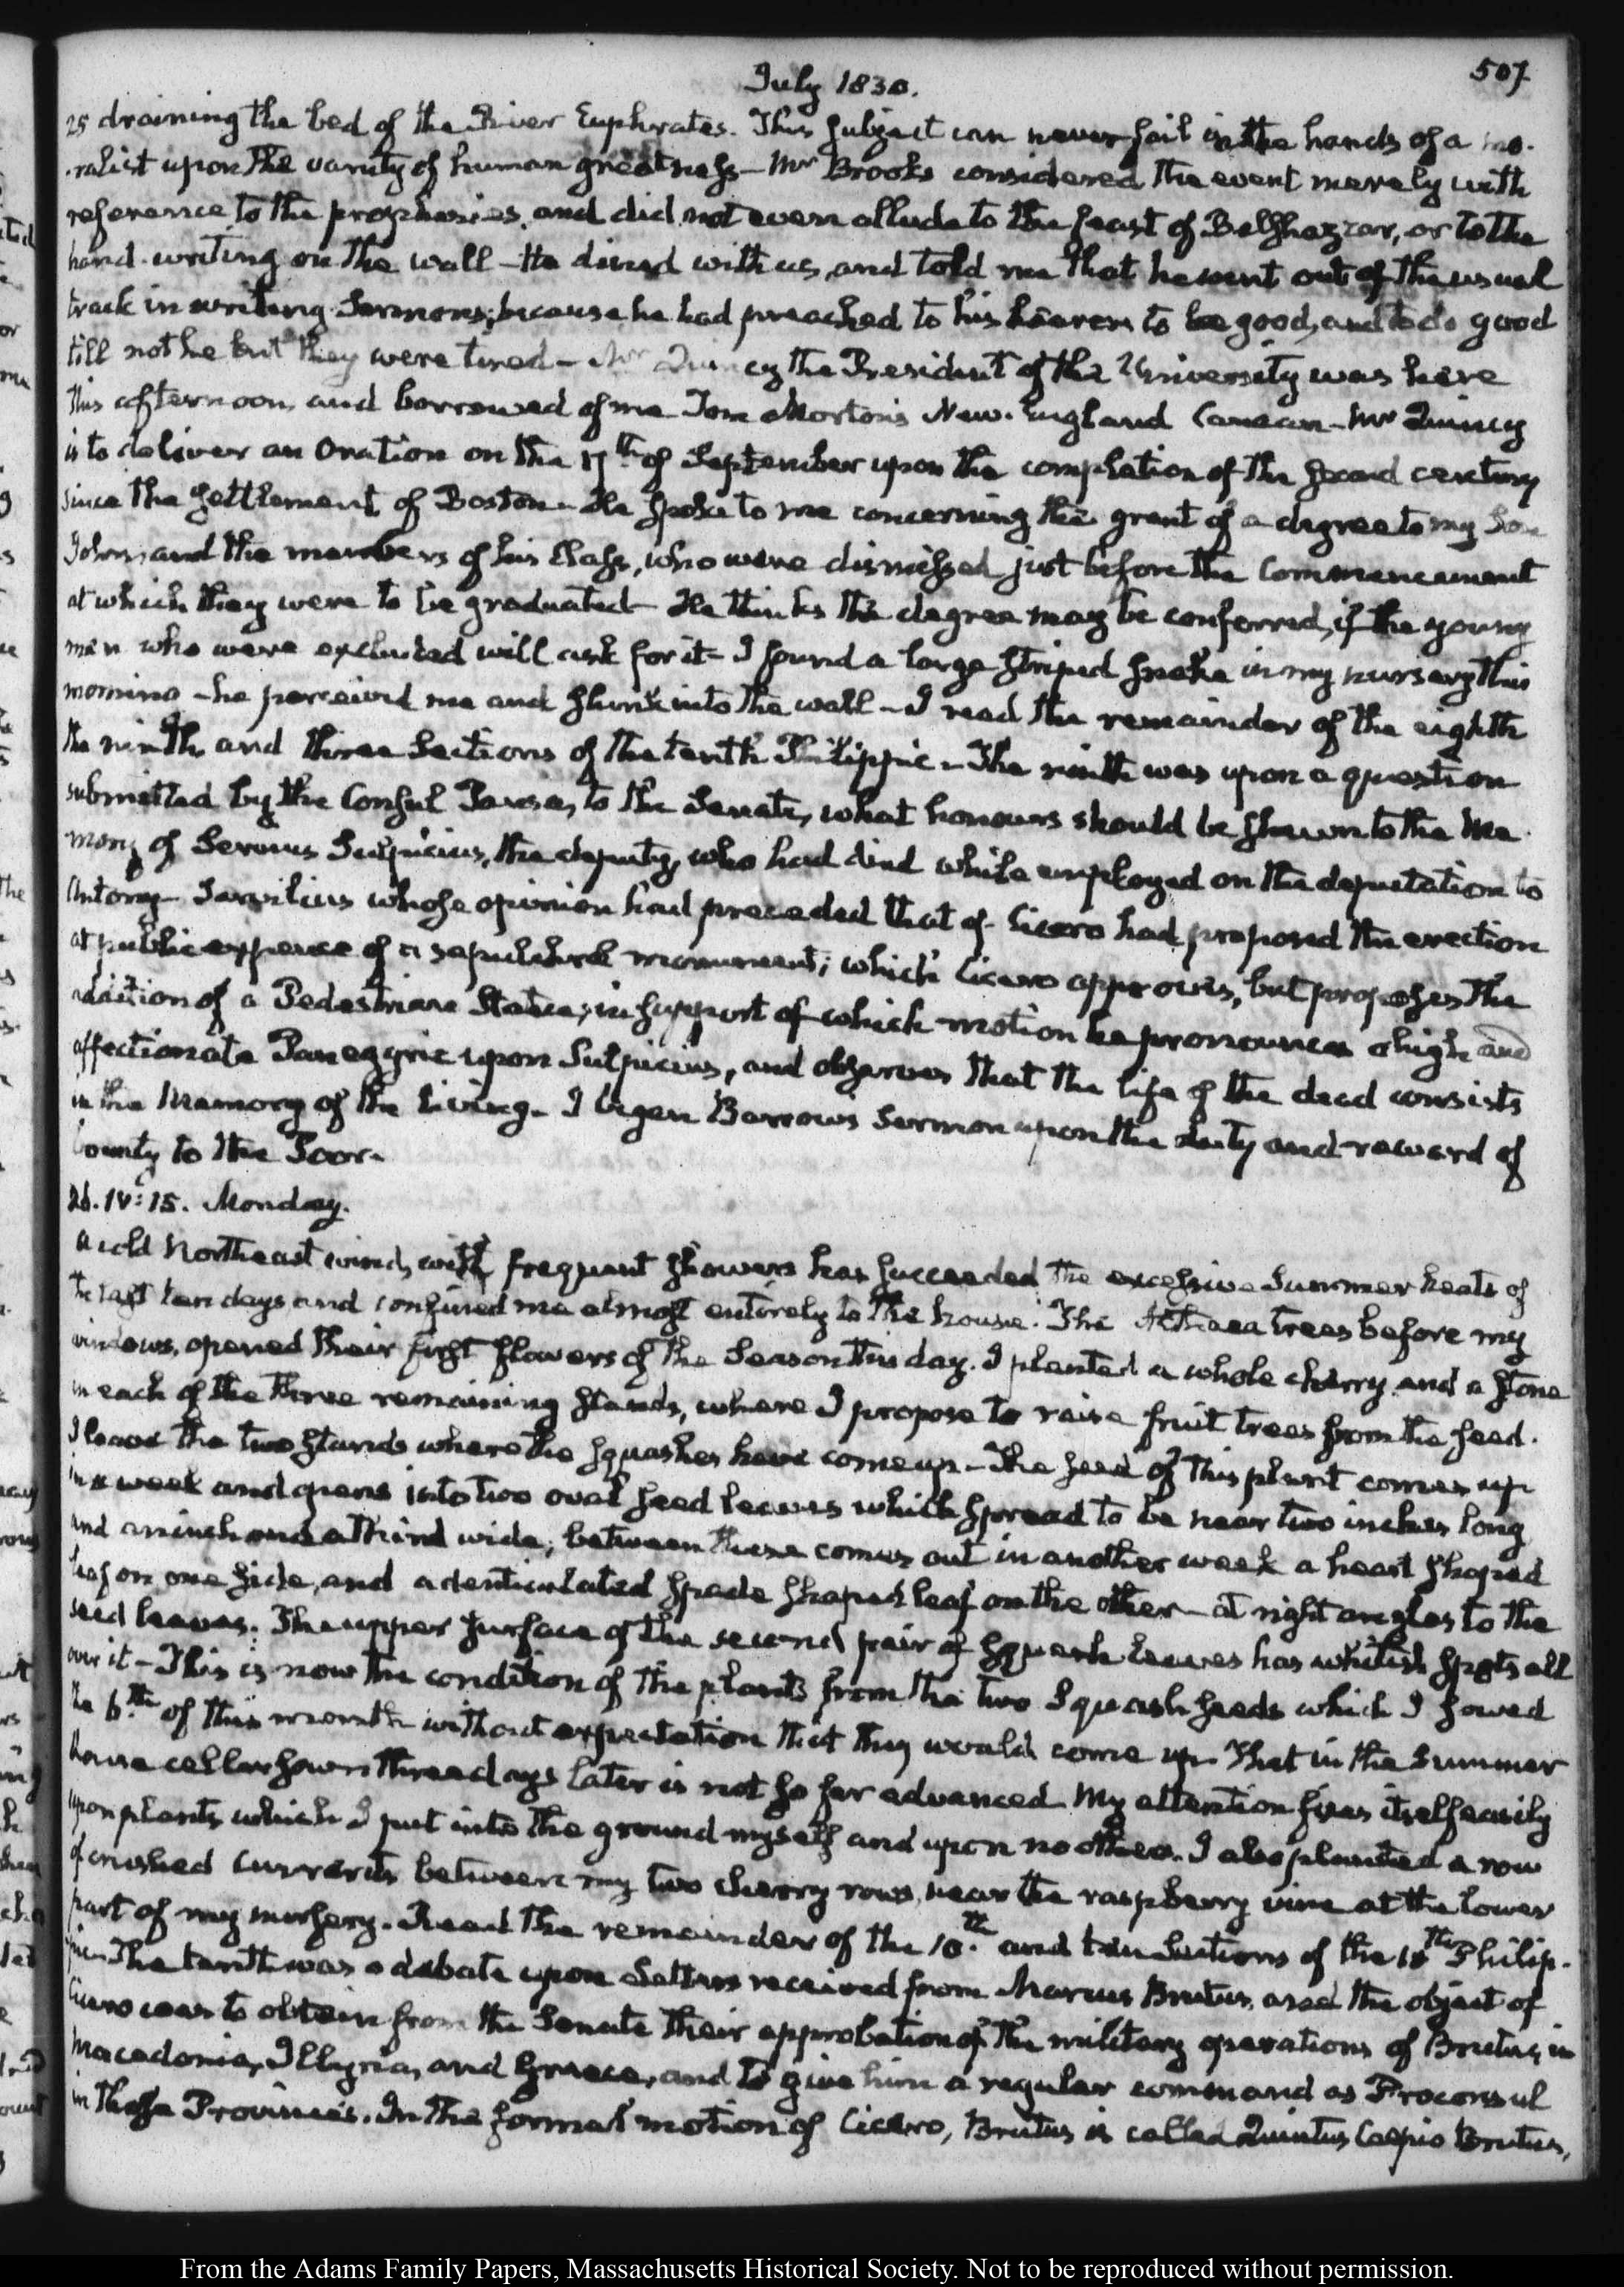 507
July 1830.
25 draining the bed of the River Euphrates. This subject can never fail in the hands of a mo-
-ralist upon the vanity of human greatness — Mr Brooks considered the event merely with
reference to the prophecies, and did not even allude to the feast of Belshazzar, or to the
hand-writing on the wall — He dined with us, and told me that he went out of the usual
track in writing Sermons; because he had preached to his hearers to be good, and to do good
till not he but they were tired — Mr Quincy the President of the University was here
this afternoon, and borrowed of me Tom Morton's New-England Canaan — Mr Quincy
is to deliver an Oration on the 17th of September upon the completion of the second century
since the settlement of Boston — He spoke to me concerning the grant of a degree to my Son
John, and the members of his Class, who were dismissed just before the Commencement
at which they were to be graduated — He thinks the degree may be conferred, if the young
men who were excluded will ask for it — I found a large striped snake in my nursery this
morning — he perceived me and slunk into the wall — I read the remainder of the eighth
the ninth and three Sections of the tenth Philippic — The ninth was upon a question
submitted by the Consul Pansa, to the Senate, what honours should be shewn to the me-
mory of Servius Sulpicius, the deputy, who had died while employed on the deputation to
Antony — Servilius whose opinion had preceded that of Cicero had proposed the erection
at public expence of a sepulchral monument; which Cicero approves, but proposes the
addition of a Pedestrian Statue; in support of which motion he pronounces a high and
affectionate Panegyric upon Sulpicius, and observes that the life of the dead consists
in the Memory of the living — I began Barrow's Sermon upon the duty and reward of
bounty to the Poor.
26. IV:15. Monday.
A cold Northeast wind, with frequent showers has succeeded the excessive Summer heats of
the last ten days and confined me almost entirely to the house. The Althaea trees before my
windows, opened their first flowers of the Season this day. I planted a whole cherry and a stone
in each of the three remaining stands, where I propose to raise fruit trees from the seed.
I leave the two stands where the squashes have come up — The seed of this plant comes up
in a week and opens into two oval seed leaves which spread to be near two inches long
and an inch and a third wide; between these comes out in another week a heart shaped
leaf on one side, and a denticulated spade shaped leaf on the other — at right angles to the
seed leaves. The upper surface of the second pair of squash leaves has whitish spots all
over it — This is now the condition of the plants from the two Squash seeds which I sowed
the 6th of this month without expectation that they would come up. That in the Summer
house cellar sown three days later is not so far advanced. My attention fixes itself easily
upon plants which I put into the ground myself and upon no others. I also planted a row
of crushed Currants between my two cherry rows, near the raspberry vine at the lower
part of my nursery. Read the remainder of the 10th and ten Sections of the 11th Philip-
pic. The tenth was a debate upon Letters received from Marcus Brutus, and the object of
Cicero was to obtain from the Senate their approbation of the military operations of Brutus, in
Macedonia, Illyria, and Greece, and to give him a regular command as Proconsul
in those Provinces. In the formal motion of Cicero, Brutus is called Quintus Caepio Brutus,
From the Adams Family Papers, Massachusetts Historical Society. Not to be reproduced without permission.